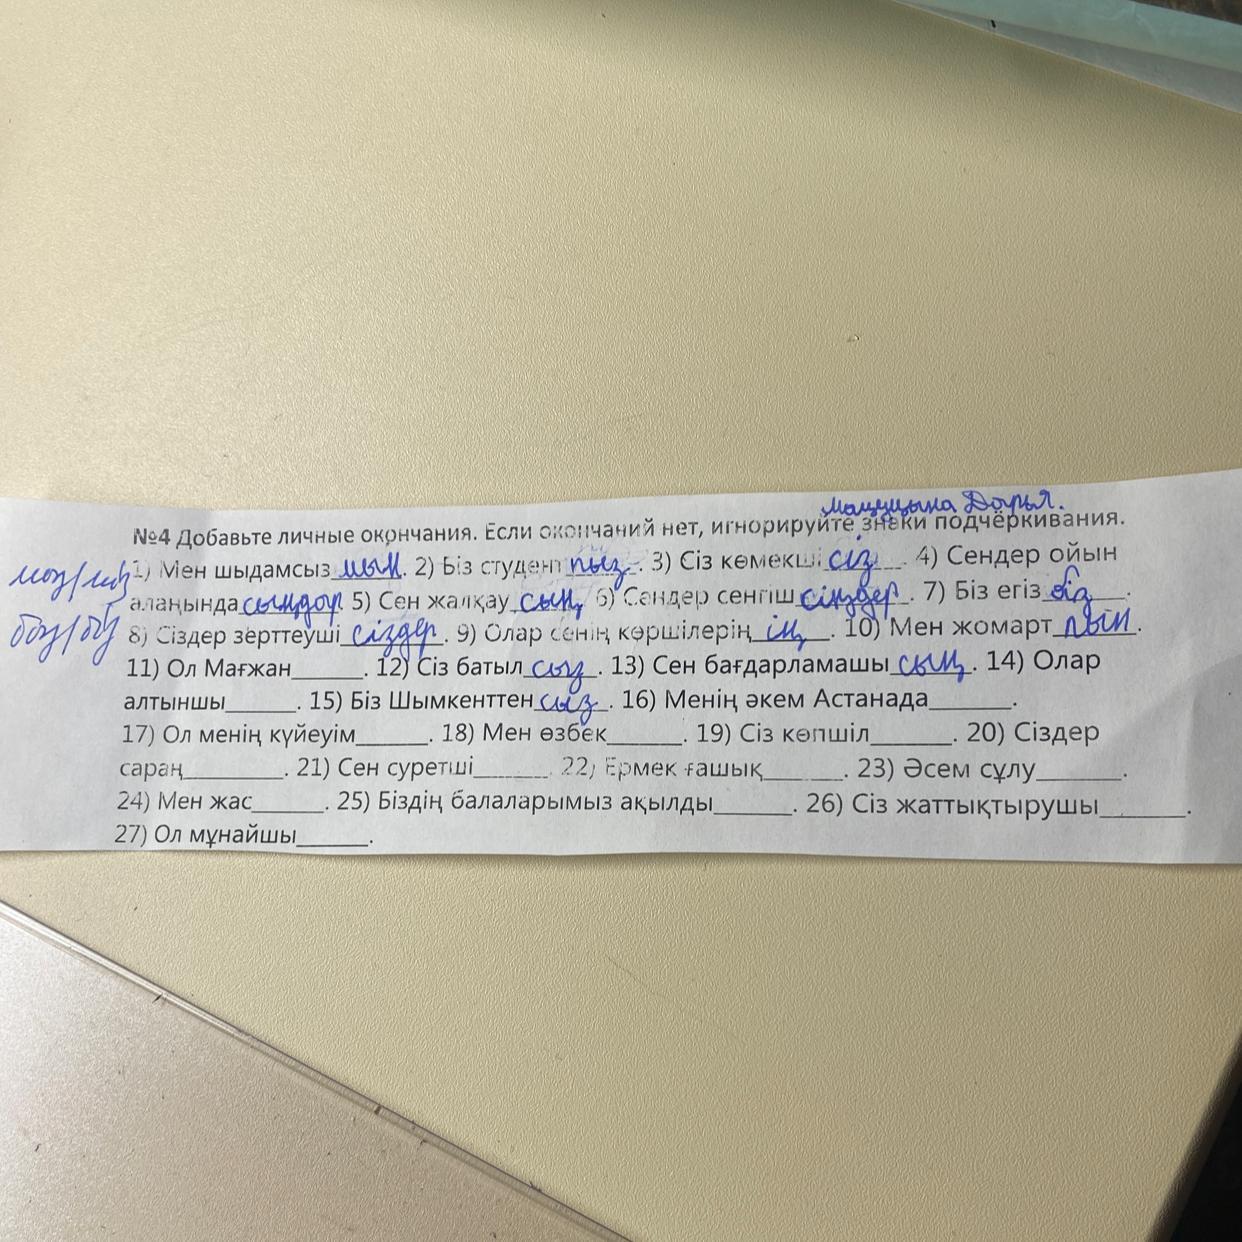 Дарья.
№4 Добавьте личные окончания. Если окончаний нет, игнорируйте знаки подчёркивания.
1) Мен шыдамсыз мын. 2) Біз студент пыз. 3) Сіз көмекші сіз. 4) Сендер ойын
алаңында сыңдар. 5) Сен жалқау сың 6) Сендер сенгіш сіңдер. 7) Біз егіз біз.
8) Сіздер зерттеуші сіздер. 9) Олар сенің көршілерің ің. 10) Мен жомарт пын.
11) Ол Мағжан______. 12) Сіз батыл сыз. 13) Сен бағдарламашы сың. 14) Олар
алтыншы______. 15) Біз Шымкенттен сыз. 16) Менің әкем Астанада_______.
17) Ол менің күйеуім______. 18) Мен өзбек______. 19) Сіз көпшіл_______. 20) Сіздер
сараң_________. 21) Сен суретші______. 22) Ермек ғашық_______. 23) Әсем сұлу_______.
24) Мен жас______. 25) Біздің балаларымыз ақылды_______. 26) Сіз жаттықтырушы_______.
27) Ол мұнайшы______.